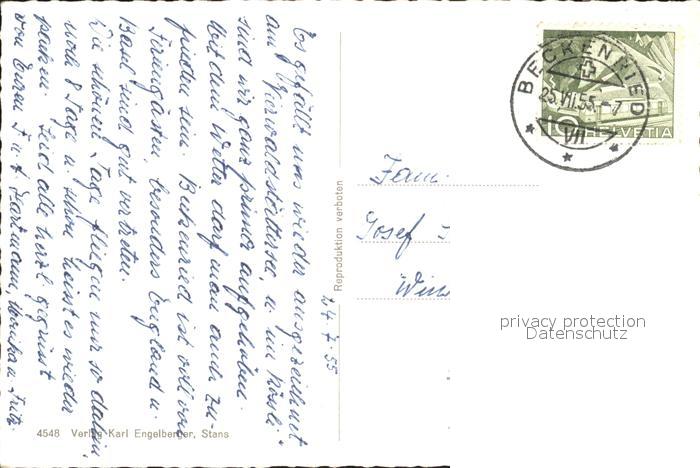 Es gefällt uns wieder ausgezeichnet
am Vierwaldstättersee, u. im Rössli
sind wir ganz prima aufgehoben.
Mit dem Wetter darf man auch zu-
frieden sein. Beckenried ist voll von
Feriengästen, besonders England u.
Basel sind gut vertreten.
Die schönen Tage fliegen nur so dahin,
noch 8 Tage u. schon heisst es wieder
packen. Seid alle herzl. gegrüsst
von Euren F. u. F. Hartmann, Monika u. Fritz
24.7.55
Reproduktion verboten
4548 Verlag Karl Engelberger, Stans
BECKENRIED
25.VII.55.-7
VII
10 HELVETIA
Fam.
Josef
privacy protection
Datenschutz